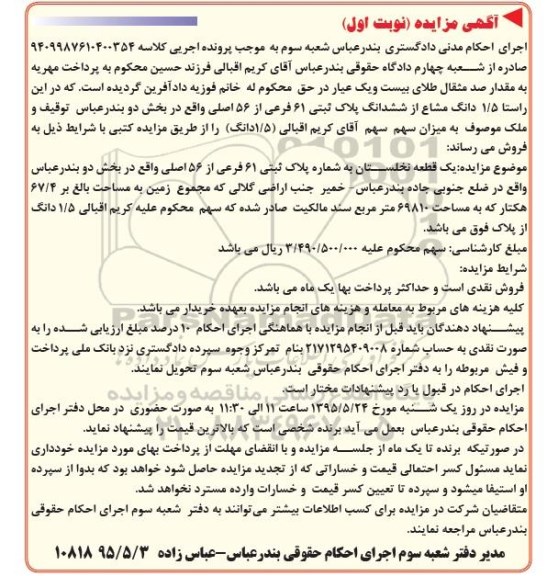 آگهی مزایده (نوبت اول)
اجرای احکام مدنی دادگستری بندرعباس شعبه سوم به موجب پرونده اجریی کلاسه ۹۴۰۹۹۸۷۶۱۰۴۰۰۳۵۴
صادره از شعبه چهارم دادگاه حقوقی بندرعباس آقای کریم اقبالی فرزند حسین محکوم به پرداخت مهریه
به مقدار صد مثقال طلای بیست ویک عیار در حق محکوم له خانم فوزیه دادآفرین گردیده است. که در این
راستا ۱/۵ دانگ مشاع از ششدانگ پلاک ثبتی ۶۱ فرعی از ۵۶ اصلی واقع در بخش دو بندرعباس توقیف و
ملک موصوف به میزان سهم سهم آقای کریم اقبالی (۱/۵دانگ) را از طریق مزایده کتبی با شرایط ذیل به
فروش می رساند:
موضوع مزایده:یک قطعه نخلستان به شماره پلاک ثبتی ۶۱ فرعی از ۵۶ اصلی واقع در بخش دو بندرعباس
واقع در ضلع جنوبی جاده بندرعباس - خمیر جنب اراضی گلالی که مجموع زمین به مساحت بالغ بر ۶۷/۴
هکتار که به مساحت ۶۹۸۱۰ متر مربع سند مالکیت صادر شده که سهم محکوم علیه کریم اقبالی ۱/۵ دانگ
از پلاک فوق می باشد.
مبلغ کارشناسی: سهم محکوم علیه ۳/۴۹۰/۵۰۰/۰۰۰ ریال می باشد
شرایط مزایده:
فروش نقدی است و حداکثر پرداخت بها یک ماه می باشد.
کلیه هزینه های مربوط به معامله و هزینه های انجام مزایده بعهده خریدار می باشد.
پیشنهاد دهندگان باید قبل از انجام مزایده با هماهنگی اجرای احکام ۱۰ درصد مبلغ ارزیابی شده را به
صورت نقدی به حساب شماره ۲۱۷۱۲۹۵۴۰۹۰۰۸ بنام تمرکز وجوه سپرده دادگستری نزد بانک ملی پرداخت
و فیش مربوطه را به دفتر اجرای احکام حقوقی بندرعباس شعبه سوم تحویل نمایند.
اجرای احکام در قبول یا رد پیشنهادات مختار است.
مزایده در روز یک شنبه مورخ ۱۳۹۵/۵/۲۴ ساعت ۱۱ الی ۱۱:۳۰ به صورت حضوری در محل دفتر اجرای
احکام حقوقی بندرعباس بعمل می آید برنده شخصی است که بالاترین قیمت را پیشنهاد نماید.
در صورتیکه برنده تا یک ماه از جلسه مزایده و با انقضای مهلت از پرداخت بهای مورد مزایده خودداری
نماید مسئول کسر احتمالی قیمت و خساراتی که از تجدید مزایده حاصل شود خواهد بود که بدوا از سپرده
او استیفا میشود و سپرده تا تعیین کسر قیمت و خسارات وارده مسترد نخواهد شد.
متقاضیان شرکت در مزایده برای کسب اطلاعات بیشتر می‌توانند به دفتر شعبه سوم اجرای احکام حقوقی
بندرعباس مراجعه نمایند.
مدیر دفتر شعبه سوم اجرای احکام حقوقی بندرعباس-عباس زاده ۹۵/۵/۳ ۱۰۸۱۸